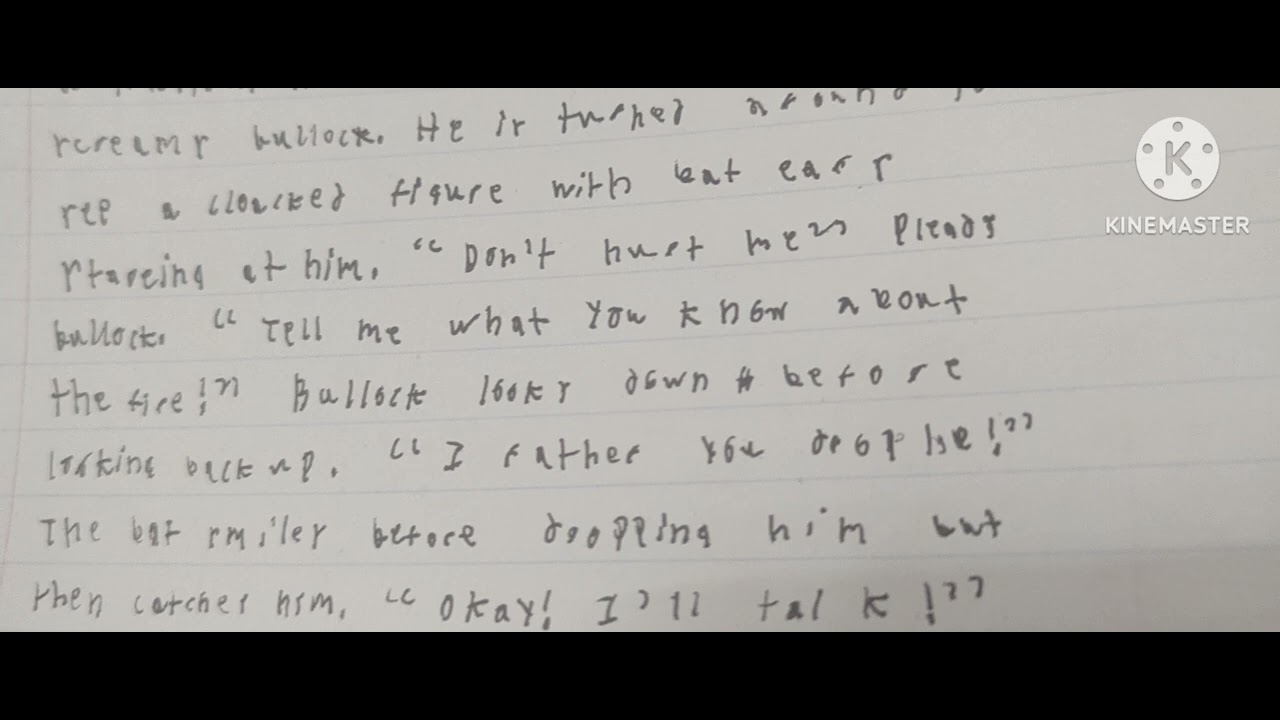 screams bullock. He is turned around to
see a cloacked figure with bat ears
stareing at him. “Don't hurt me” Pleads
bullock. “Tell me what you know about
the fire!” Bullock looks down before
looking back up. “I rather you drop me!”
The bat smiles before dropping him but
then catches him. “Okay! I'll talk!”
KINEMASTER